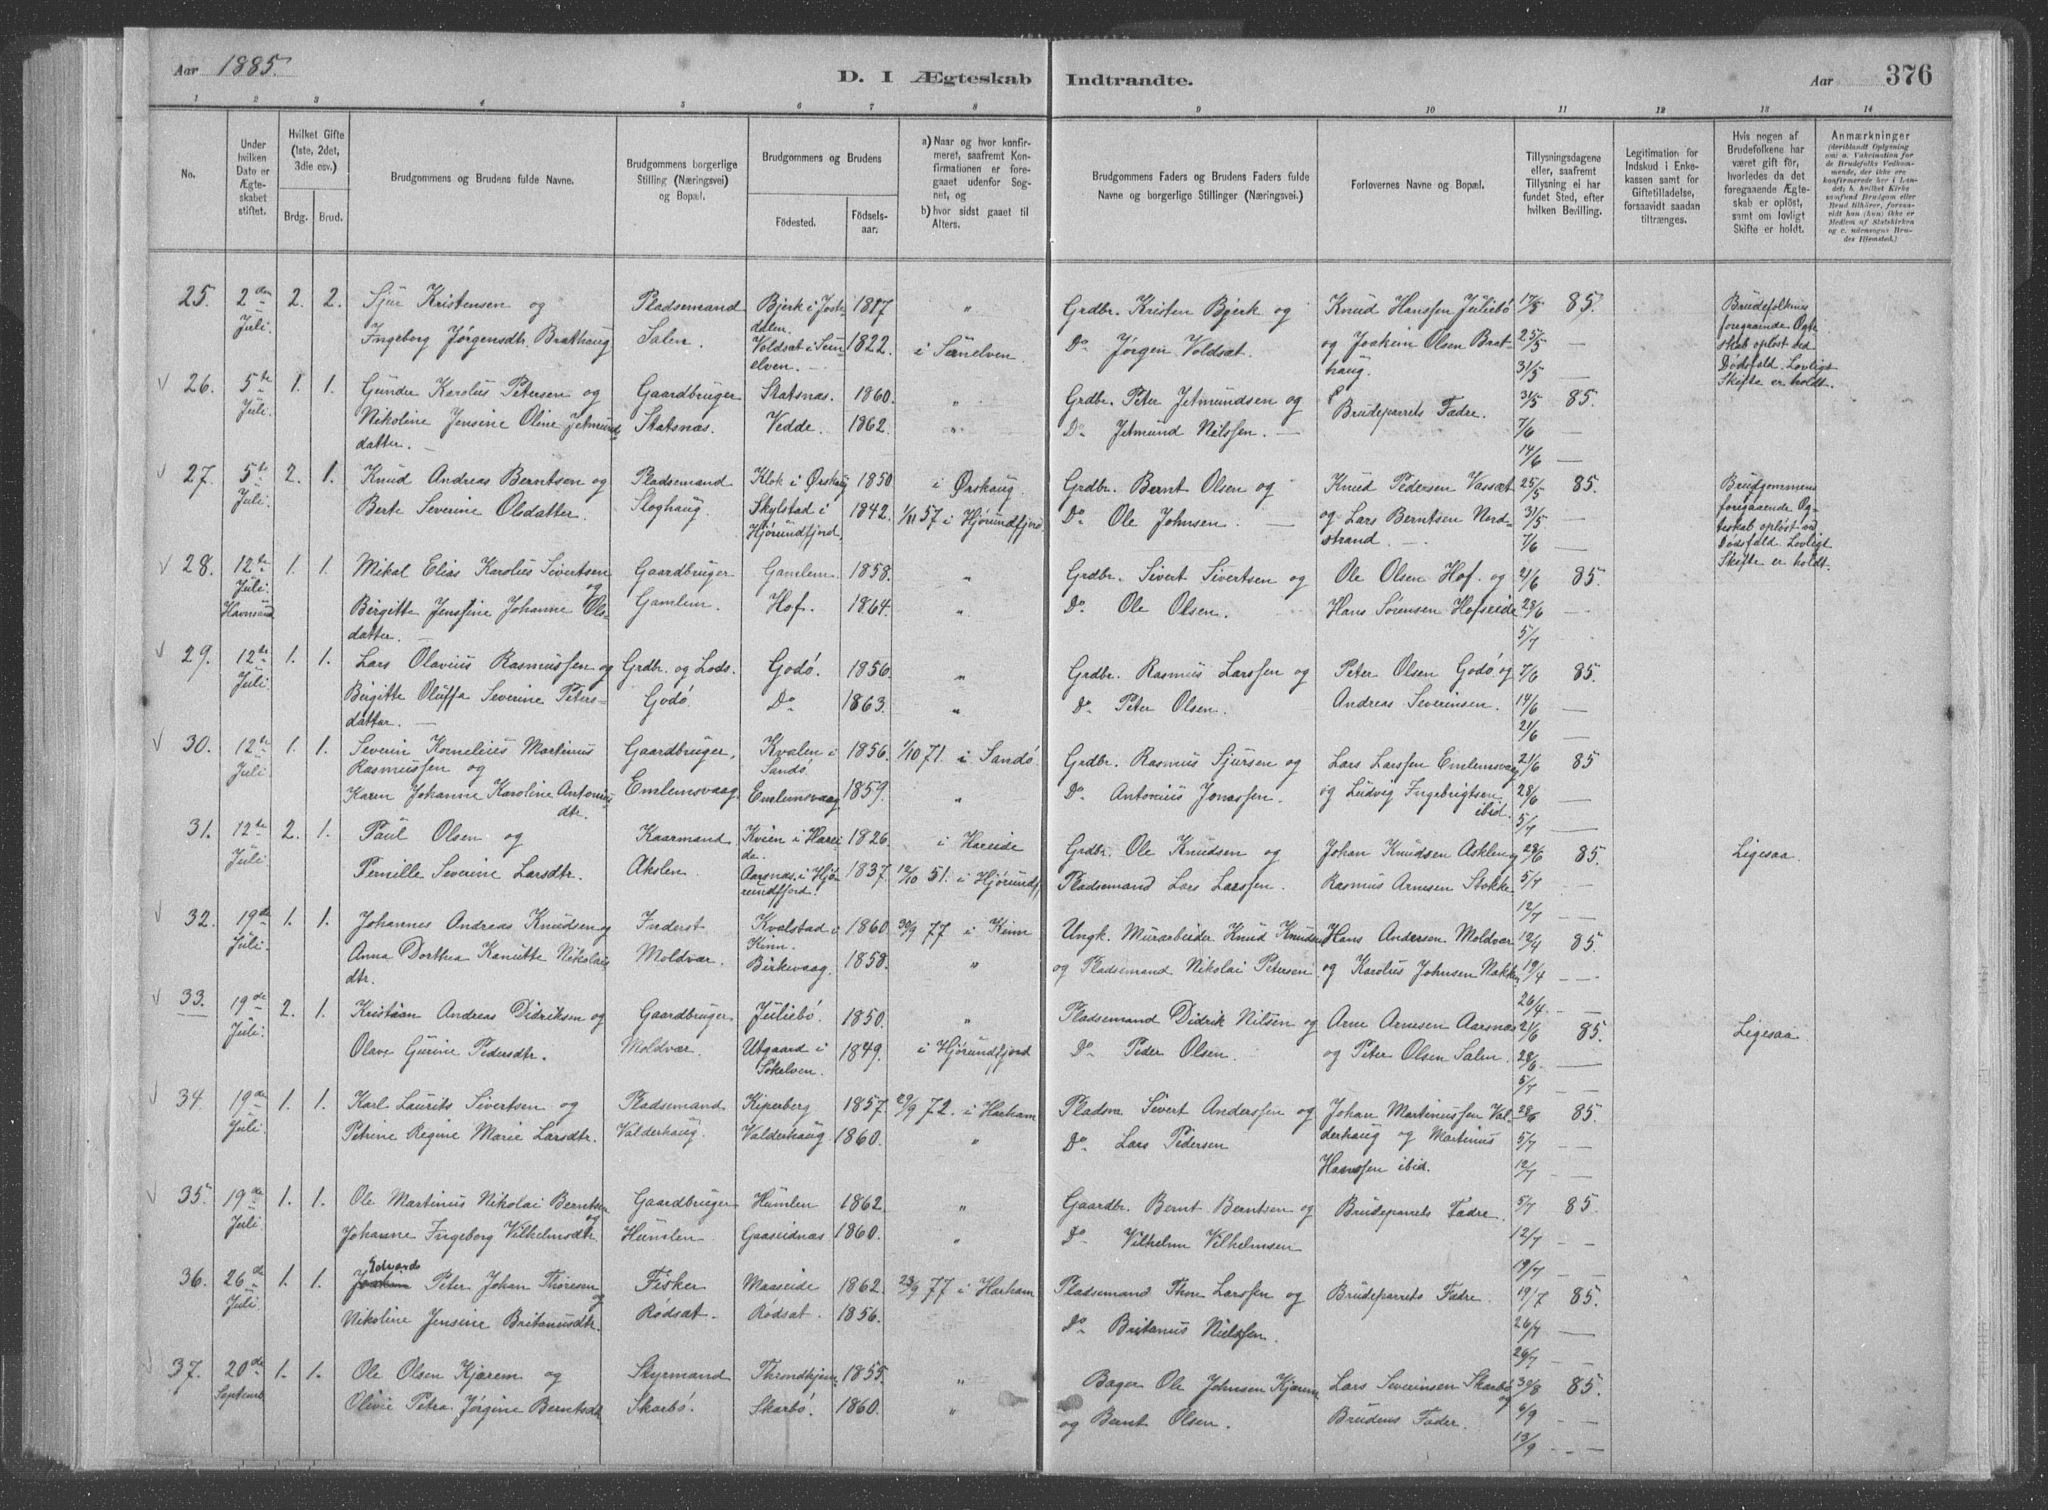 Aar 1885.
D. I Ægteskab Indtraadte.
Aar 376
1 2 3 4 5 6 7 8 9 10 11 12 13 14
No.
Under hvilken Dato er Ægteskabet stiftet.
Hvilket Gifte (1ste, 2det, 3die osv.)
Brdg. Brud.
Brudgommens og Brudens fulde Navne.
Brudgommens borgerlige Stilling (Næringsvei) og Bopæl.
Brudgommens og Brudens
Födested. Födsels-aar.
a) Naar og hvor konfirmeret, saafremt Konfirmationen er foregaaet udenfor Sognet, og
b) hvor sidst gaaet til Alters.
Brudgommens Faders og Brudens Faders fulde Navne og borgerlige Stillinger (Næringsvei.)
Forlovernes Navne og Bopæl.
Tillysningsdagene eller, saafremt Tillysning ei har fundet Sted, efter hvilken Bevilling.
Legitimation for Indskud i Enkekassen samt for Giftetilladelse, forsaavidt saadan tiltrænges.
Hvis nogen af Brudefolkene har været gift för, hvorledes da det foregaaende Ægteskab er oplöst, samt om lovligt Skifte er holdt.
Anmærkninger
25. 2den Juli. 2. 2. Sjur Kristensen og Pladsemand Bjerk i Jostedalen 1817 " Grdbr. Kristen Bjerk og Knud Hanssen Juliebö 17/5 85. Brudefolkenes
Ingeborg Jørgensdtr. Brathaug Salen. Voldsæt i Sunelven. 1822. i Sunelven. Do Jørgen Voldsæt. og Joakim Olsen Brathaug. 25/5 — 31/5 foregaaende Ægteskab opløst ved Dødsfald. Lovligt Skifte er holdt.
26. 5te Juli. 1. 1. Gunder Karolus Petersen og Gaardbruger Statsnæs. 1860. " Grdbr. Peter Jetmundsen og Brudeparrets Fædre. 31/5 85.
Nikoline Jensine Oline Jetmundsdatter. Statsnæs. Vedde. 1862. " Do Jetmund Nilssen. 7/6 — 14/6 —
27. 5te Juli. 2. 1. Knud Andreas Berntsen og Pladsemand Klok i Ørskaug 1850 i Ørskaug. Grdbr. Bernt Olsen og Knud Pedersen Vassæt 25/5 85. Brudgommens
Berte Severine Olsdatter. Skoghaug. Skylstad i Hjørundfjord. 1842. 1/11 57 i Hjørundfjord Do Ole Johnsen. og Lars Berntsen Nordstrand. 31/5 — 7/6 — foregaaende Ægteskab opløst ved Dødsfald. Lovligt Skifte er holdt.
28. 12te Juli. Havnsund 1. 1. Mikal Elias Karolus Sivertsen og Gaardbruger Gamlem. 1858. " Grdbr. Sivert Sivertsen og Ole Olsen Hof. og 21/6 85.
Birgitte Jenssine Johanne Olsdatter. Gamlem. Hof. 1864. " Do Ole Olsen. Hans Sørensen Hofseide 28/6 — 5/7
29. 12te Juli. 1. 1. Lars Olavius Rasmussen og Grdbr. og Lods. Godö. 1856. " Grdbr. Rasmus Larssen og Peter Olsen Godö og 7/6 85.
Birgitte Oluffa Severine Petersdatter. Godö. Do 1863. " Do Peter Olsen. Andreas Severinsen. 14/6 — 21/6
30. 12te Juli. 1. 1. Severin Kornelius Martinus Rasmussen og Gaardbruger, Kvalen i Sandö. 1856. 1/10 71. i Sandö. Grdbr. Rasmus Sjursen og Lars Larssen Emlemsvaag 21/6 85
Karen Johanne Karoline Antoniusdtr. Emlemsvaag. Emlemsvaag 1859. " Do Antonius Jonassen. og Ludvig Ingebrigtsen ibid. 28/6 — 5/7 —
31. 12te Juli. 2. 1. Paul Olsen og Kaarmand Kvien i Hareide. 1826. i Hareide Grdbr. Ole Knudsen og Johan Knudsen Akslen og 28/6 85. Ligesaa.
Pernille Severine Larsdtr. Akslen. Aarsnæs. i Hjørundfjord. 1837. 12/10 51. i Hjørundfj. Pladsemand Lars Larssen. Rasmus Arnesen Stokke 5/7 — 12/7 —
32. 19de Juli. 1. 1. Johannes Andreas Knudsen og Inderst Kvalstad i Kinn. 1860. 30/9 77 i Kinn Ungk. Murarbeider Knud Knudsen Hans Andersen Moldvær 12/4 85.
Anna Dorthea Kanutte Nikolaidtr. Moldvær. Birkevaag. 1858. " og Pladsemand Nikolai Petersen. og Karolus Johnsen Nakken. 19/4 — 26/4 —
33. 19de Juli. 2. 1. Kristian Andreas Didriksen og Gaardbruger Juliebö. 1850. " Pladsemand Didrik Nilsen og Arne Arnesen Aarsnæs 21/6 85. Ligesaa
Olave Gurine Pedersdtr. Moldvær. Utgaard i Søkelven. 1849. i Hjørundfjord Do Peder Olsen. og Peter Olsen Salen. 28/6 — 5/7 —
34. 19de Juli. 1. 1. Karl Laurits Sivertsen og Pladsemand Kiperberg 1857. 29/9 72. i Harham Pladsm Sivert Anderssen og Johan Martinussen Valderhaug og Martinus Hanssen ibid. 28/6 85.
Petrine Regine Marie Larsdtr. Valderhaug. Valderhaug 1860. " Do Lars Pedersen 5/7 — 12/7 —
35. 19de Juli. 1. 1. Ole Martinus Nikolai Berntsen og Gaardbruger Humlen 1862. " Gaardbr. Bernt Berntsen og Brudeparrets Fædre. 5/7 85.
Johanne Ingeborg Vilhelmsdtr. Humlen. Gaaseidnæs 1860. " Do Vilhelm Vilhelmsen 12/7 — 19/7 —
36. 26de Juli. 1. 1. Edvard Peter Johan Thoresen og Fisker Maaseide 1862. 23/9 77 i Harham Pladsemand Thore Larssen og Brudeparrets Fædre. 19/7 85.
Nikoline Jensine Britanusdtr. Rødsæt. Rødsæt. 1856. Do Britanus Nielssen. 26/7 — 26/7 —
37. 20de Septemb. 1. 1. Ole Olsen Kjærem og Styrmand Throndhjem. 1855. " Bager Ole Johnsen Kjærem Lars Severinsen Skarbö og 30/8 85.
Olivie Petra Jørgine Berntsdtr. Skarbö. Skarbö. 1860. " og Bernt Olsen. Brudens Fader. 6/9 — 13/9 —